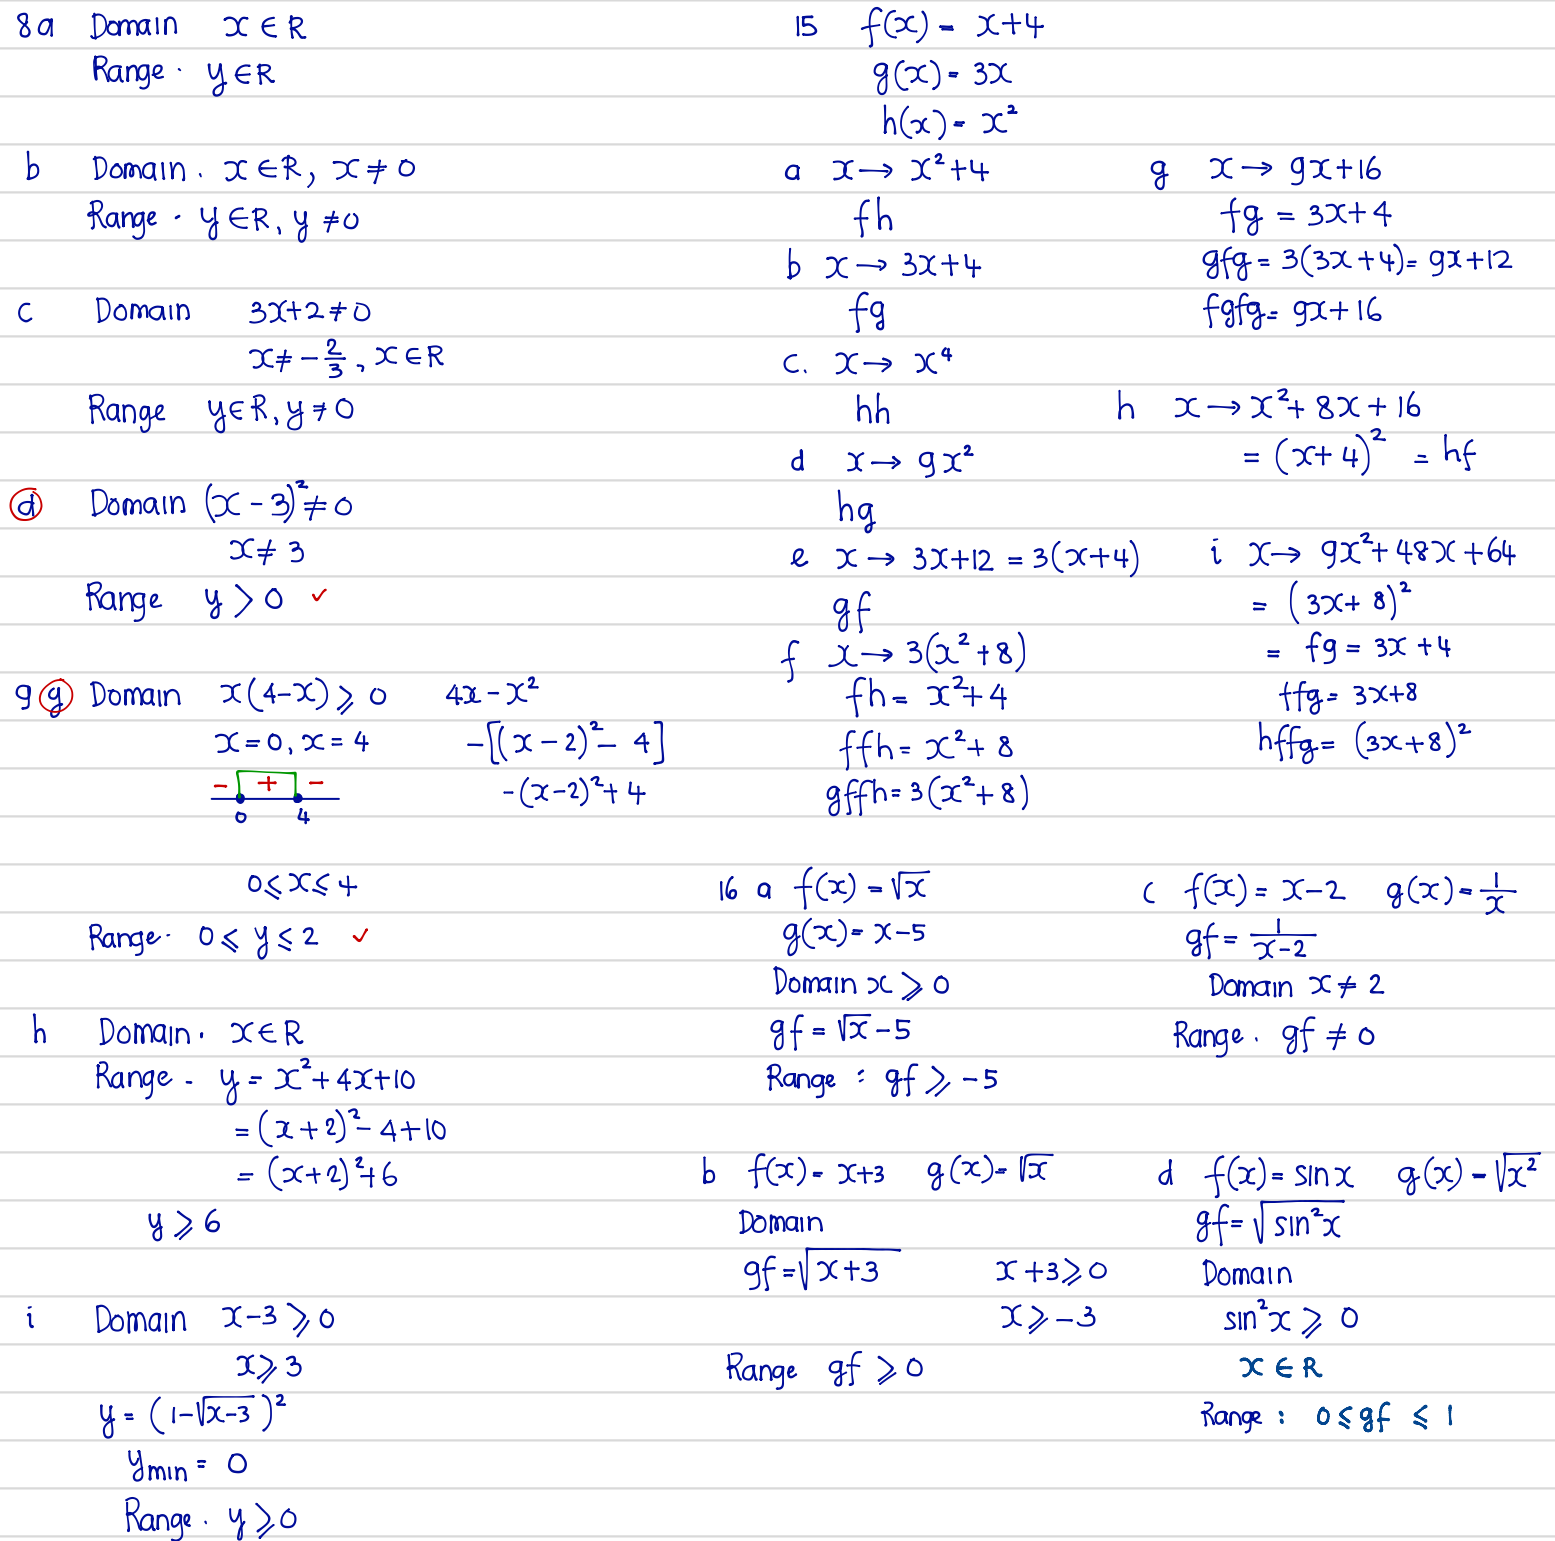 8a Domain x ∈ R
Range · y ∈ R
b Domain . x ∈ R, x ≠ 0
Range · y ∈ R, y ≠ 0
c Domain 3x+2 ≠ 0
x ≠ -2/3, x ∈ R
Range y ∈ R, y ≠ 0
d Domain (x-3)² ≠ 0
x ≠ 3
Range y > 0 ✓
9 g Domain x(4-x) ⩾ 0 4x-x²
x=0, x=4 -[(x-2)²-4]
- + - -(x-2)²+4
0 4
0 ⩽ x ⩽ 4
Range · 0 ⩽ y ⩽ 2 ✓
h Domain . x ∈ R
Range - y = x²+4x+10
= (x+2)²-4+10
= (x+2)²+6
y ⩾ 6
i Domain x-3 ⩾ 0
x ⩾ 3
y = (1-√(x-3))²
ymin = 0
Range . y ⩾ 0
15 f(x) = x+4
g(x) = 3x
h(x) = x²
a x → x²+4
fh
b x → 3x+4
fg
c. x → x⁴
hh
d x → 9x²
hg
e x → 3x+12 = 3(x+4)
gf
f x → 3(x²+8)
fh = x²+4
ffh = x²+8
gffh = 3(x²+8)
g x → 9x+16
fg = 3x+4
gfg = 3(3x+4) = 9x+12
fgfg = 9x+16
h x → x²+8x+16
= (x+4)² = hf
i x → 9x²+48x+64
= (3x+8)²
= fg = 3x+4
ffg = 3x+8
hffg = (3x+8)²
16 a f(x) = √x
g(x) = x-5
Domain x ⩾ 0
gf = √x-5
Range : gf ⩾ -5
b f(x) = x+3 g(x) = √x
Domain
gf = √(x+3) x+3 ⩾ 0
x ⩾ -3
Range gf ⩾ 0
c f(x) = x-2 g(x) = 1/x
gf = 1/(x-2)
Domain x ≠ 2
Range . gf ≠ 0
d f(x) = sin x g(x) = √(x²)
gf = √(sin²x)
Domain
sin²x ⩾ 0
x ∈ R
Range : 0 ⩽ gf ⩽ 1